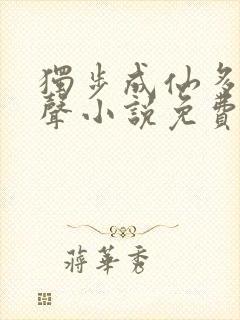 獨步成仙多
聲小說免費
蔣華秀